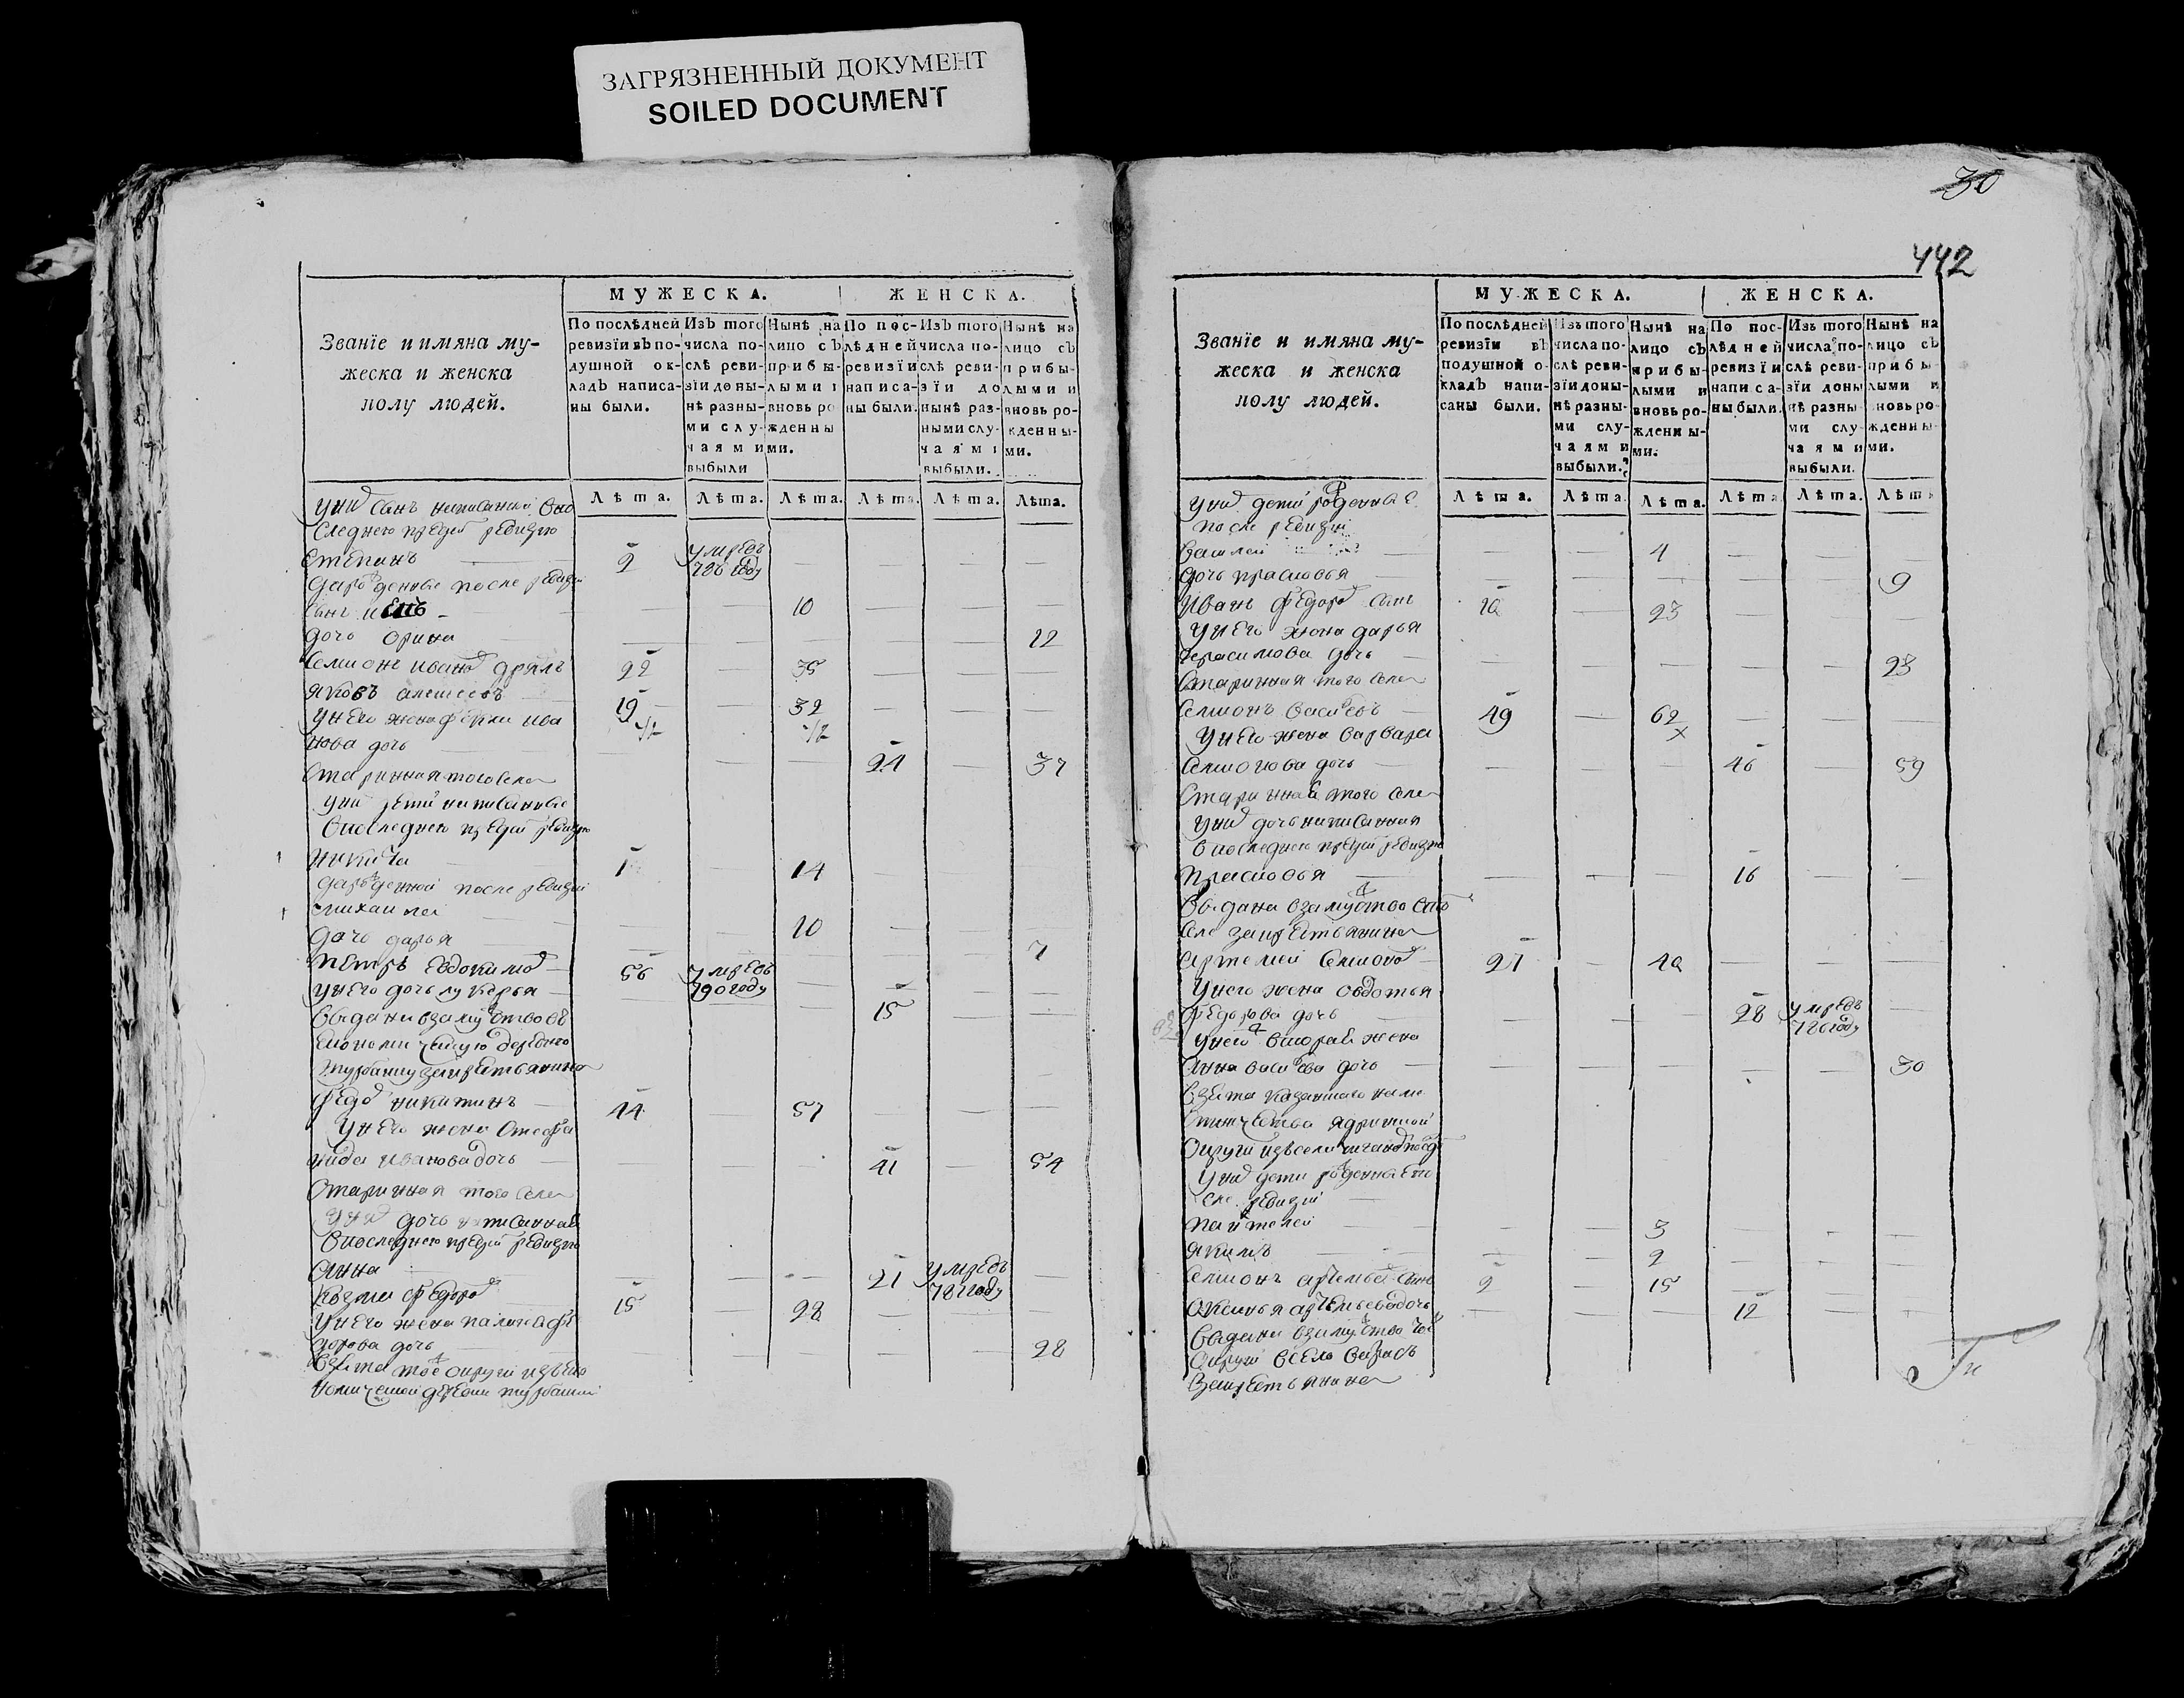 ЗАГРЯЗНЕННЫЙ ДОКУМЕНТ
SOILED DOCUMENT
Званїе и имяна му-
жеска и женска
полу людей.
МУЖЕСКА.
ЖЕНСКА.
По послѣдней ревизїи въ по-душной ок-ладъ написа-ны были.
Изъ того числа по-слѣ реви-зїи доны-нѣ разны-ми слу-чаями выбыли
Нынѣ на лицо съ прибы-лыми и вновь ро-жденны-ми.
По пос-лѣдней ревизїи написа-ны были.
Изъ того числа по-слѣ реви-зїи до нынѣ раз-ными слу-чаями выбыли.
Нынѣ на лицо съ прибы-лыми и вновь ро-жденны-ми.
Лѣта. Лѣта. Лѣта. Лѣта. Лѣта. Лѣта.
у них сынъ написанной в по
следнею пред сей ревизию
Степанъ 2 умре въ 786 году
да рожденные после ревизии
сынъ 10
дочь Орина 12
Семионъ Иванов 22 35
Яковъ Алексеевъ 19 32
у него жена Фекла Ива
нова дочь 24 37
старинная того села
у них дети написанные
в последнею пред сей ревизию
Никита 1 14
да рожденной после ревизии
Михаила 10
дочь Дарья 7
Петръ Евдокимов 56 умре въ 790 году
у него дочь Лукерья 15
выдана в замужство въ
економическую деревню
за крестьянина
Федор Никитинъ 44 57
у него жена Степа
нида Иванова дочь 41 54
старинная того села
у них дочь написанная
в последнею пред сей ревизию
Анна 21 умре въ 787 году
Козма Федоров 15 28
у него жена Палагея Фе
дорова дочь 28
взята той округи из еко
номической деревни
30
442
Званїе и имяна му-
жеска и женска
полу людей.
МУЖЕСКА.
ЖЕНСКА.
По послѣдней ревизїи въ подушной о-кладъ напи-саны были.
Изъ того числа по-слѣ реви-зїи доны-нѣ разны-ми слу-чаями выбыли.
Нынѣ на лицо съ прибы-лыми и вновь ро-жденны-ми.
По пос-лѣдней ревизїи написа-ны были.
Изъ того числа по-слѣ реви-зїи доны нѣ разны-ми слу-чаями выбыли.
Нынѣ на лицо съ прибы-лыми и вновь ро-жденны-ми.
Лѣта. Лѣта. Лѣта. Лѣта. Лѣта. Лѣта
у них дети рожденные
после ревизии
4
дочь Прасковья 9
Иванъ Федоров сынъ 10 23
у него жена Дарья
Герасимова дочь 23
старинная того села
Семионъ Васильевъ 49 62
у него жена Варвара
Семионова дочь 46 59
старинная того села
у них дочь написанная
в последнею пред сей ревизию
Прасковья 16
выдана в замужство
селе за крестьянина
Артемей Семионов 27 40
у него жена Овдотья
Федорова дочь 28 умре въ 786 году
у него вторая жена
Анна Васильева дочь 30
взята Казанскаго наме
стничества Ядринской
округи из села
у них дети рожденные по
сле ревизии
Пантелей 3
Якимъ 2
Семионъ Артемьев сынъ 2 15
Оксинья Артемьева дочь 12
выдана в замужство той
округи в село
за крестьянина